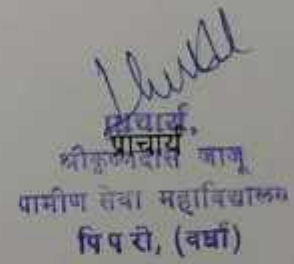 प्राचार्य,
प्राचार्य
श्रीकृष्णदास जाजू
ग्रामीण सेवा महाविद्यालय
पिपरी, (वर्धा)